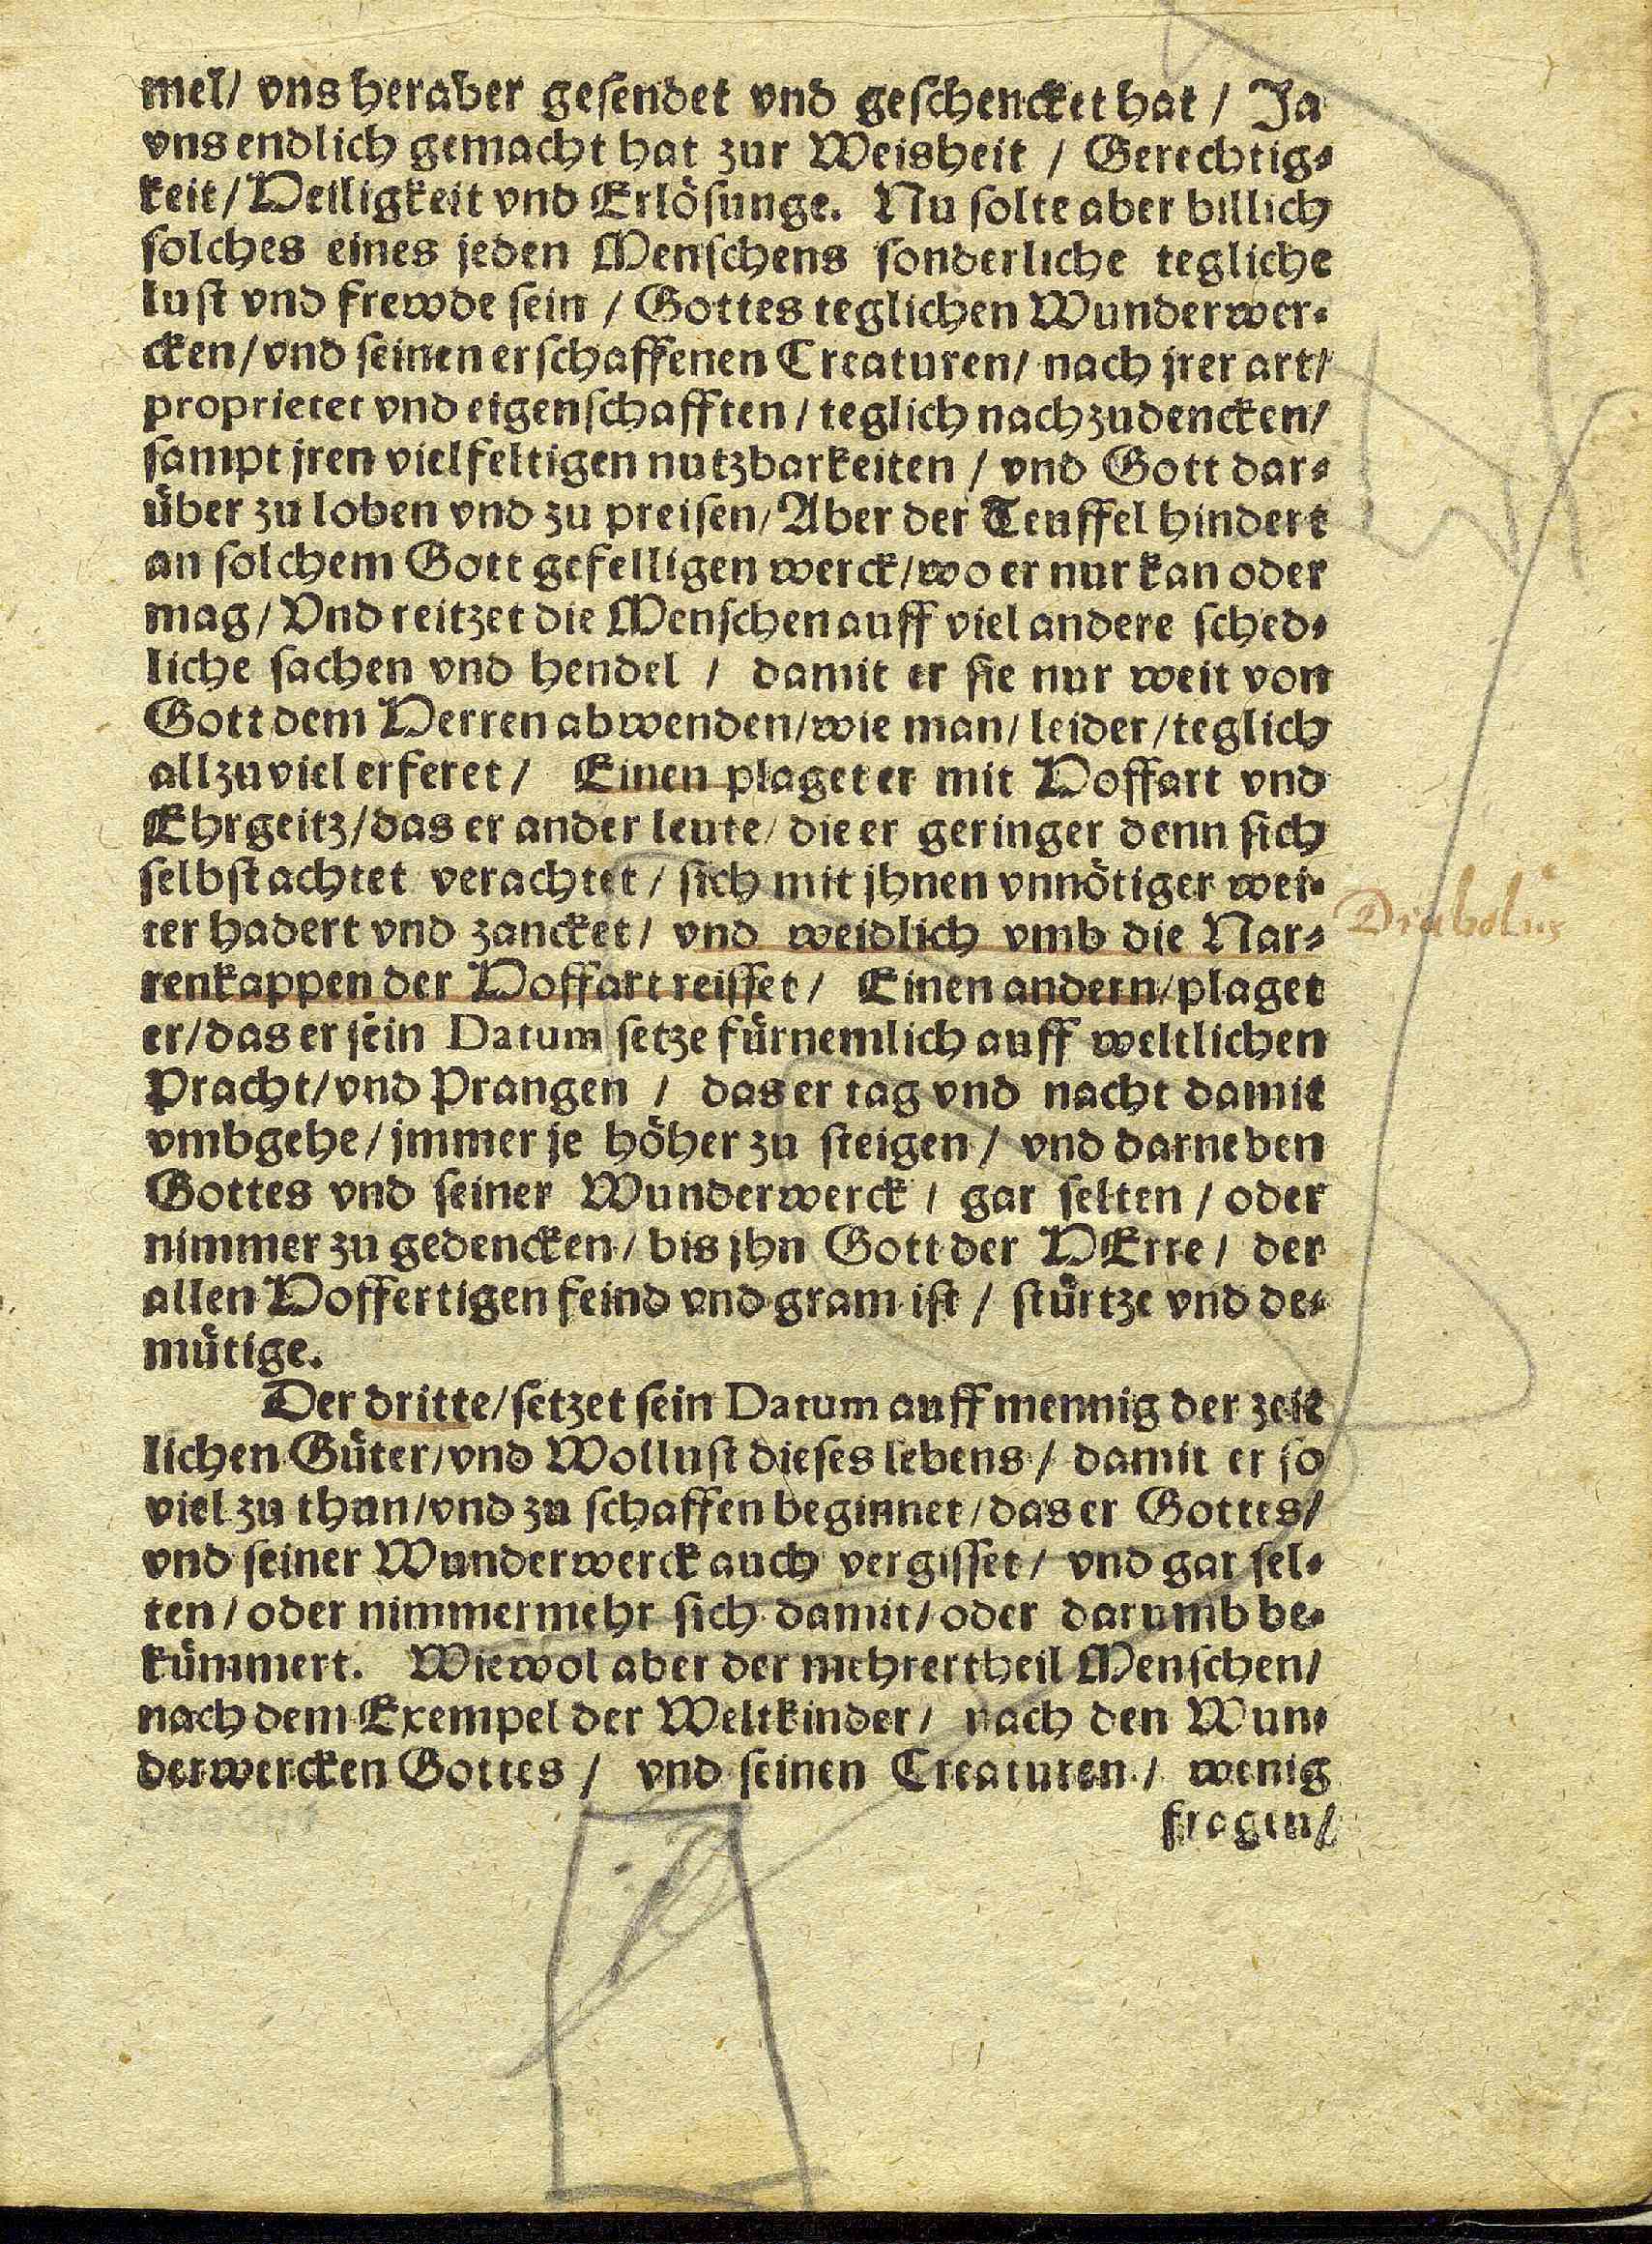 mel/ vns heraber gesendet vnd geschencket hat / Ja
vns endlich gemacht hat zur Weisheit / Gerechtig⸗
keit/ Heiligkeit vnd Erlösunge. Nu solte aber billich
solches eines jeden Menschens sonderliche tegliche
lust vnd frewde sein / Gottes teglichen Wunderwer⸗
cken/ vnd seinen erschaffenen Creaturen/ nach jrer art/
proprietet vnd eigenschafften / teglich nachzudencken/
sampt jren vielfeltigen nutzbarkeiten / vnd Gott dar⸗
über zu loben vnd zu preisen/ Aber der Teuffel hindert
an solchem Gott gefelligen werck/ wo er nur kan oder
mag/ Vnd reitzet die Menschen auff viel andere sched⸗
liche sachen vnd hendel / damit er sie nur weit von
Gott dem Herren abwenden/ wie man/ leider/ teglich
allzuviel erferet/ Einen plaget er mit Hoffart vnd
Ehrgeitz/ das er ander leute/ die er geringer denn sich
selbst achtet verachtet / sich mit jhnen vnnötiger wei⸗
ter hadert vnd zancket/ vnd weidlich vmb die Nar⸗
renkappen der Hoffart reisset/ Einen andern/ plaget
er/ das er sein Datum setze fürnemlich auff weltlichen
Pracht/ vnd Prangen / das er tag vnd nacht damit
vmbgehe / jmmer je höher zu steigen / vnd darneben
Gottes vnd seiner Wunderwerck / gar selten / oder
nimmer zu gedencken / bis jhn Gott der HErre / der
allen Hoffertigen feind vnd gram ist / stürtze vnd de⸗
mütige.
Der dritte/ setzet sein Datum auff mennig der zeit
lichen Güter/ vnd Wollust dieses lebens / damit er so
viel zu thun/ vnd zu schaffen beginnet / das er Gottes/
vnd seiner Wunderwerck auch vergisset / vnd gar sel⸗
ten / oder nimmermehr sich damit/ oder darumb be⸗
kümmert. Wiewol aber der mehrertheil Menschen/
nach dem Exempel der Weltkinder / nach den Wun⸗
derwercken Gottes / vnd seinen Creaturen / wenig
fragen/
Diabolus